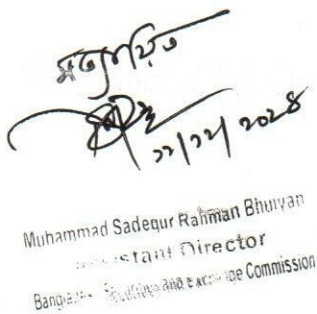 সত্যায়িত
Muhammad Sadequr Rahman Bhuiyan
Assistant Director
Bangladesh Securities and Exchange Commission